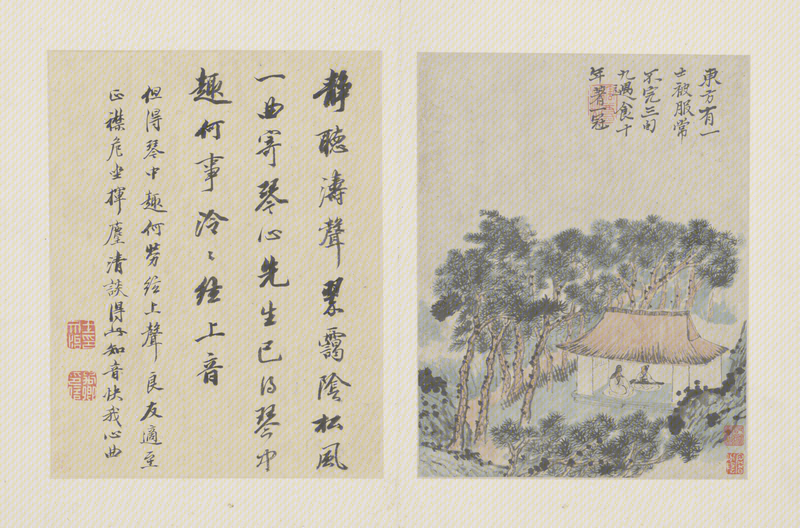 東方有一
士被服常
不完三旬
九遇食十
年著一冠
靜聽濤聲翠靄陰松風
一曲寄琴心先生已得琴中
趣何事泠泠絃上音
但得琴中趣何勞絃上聲良友適至
正襟危坐揮麈清談得此知音快我心曲